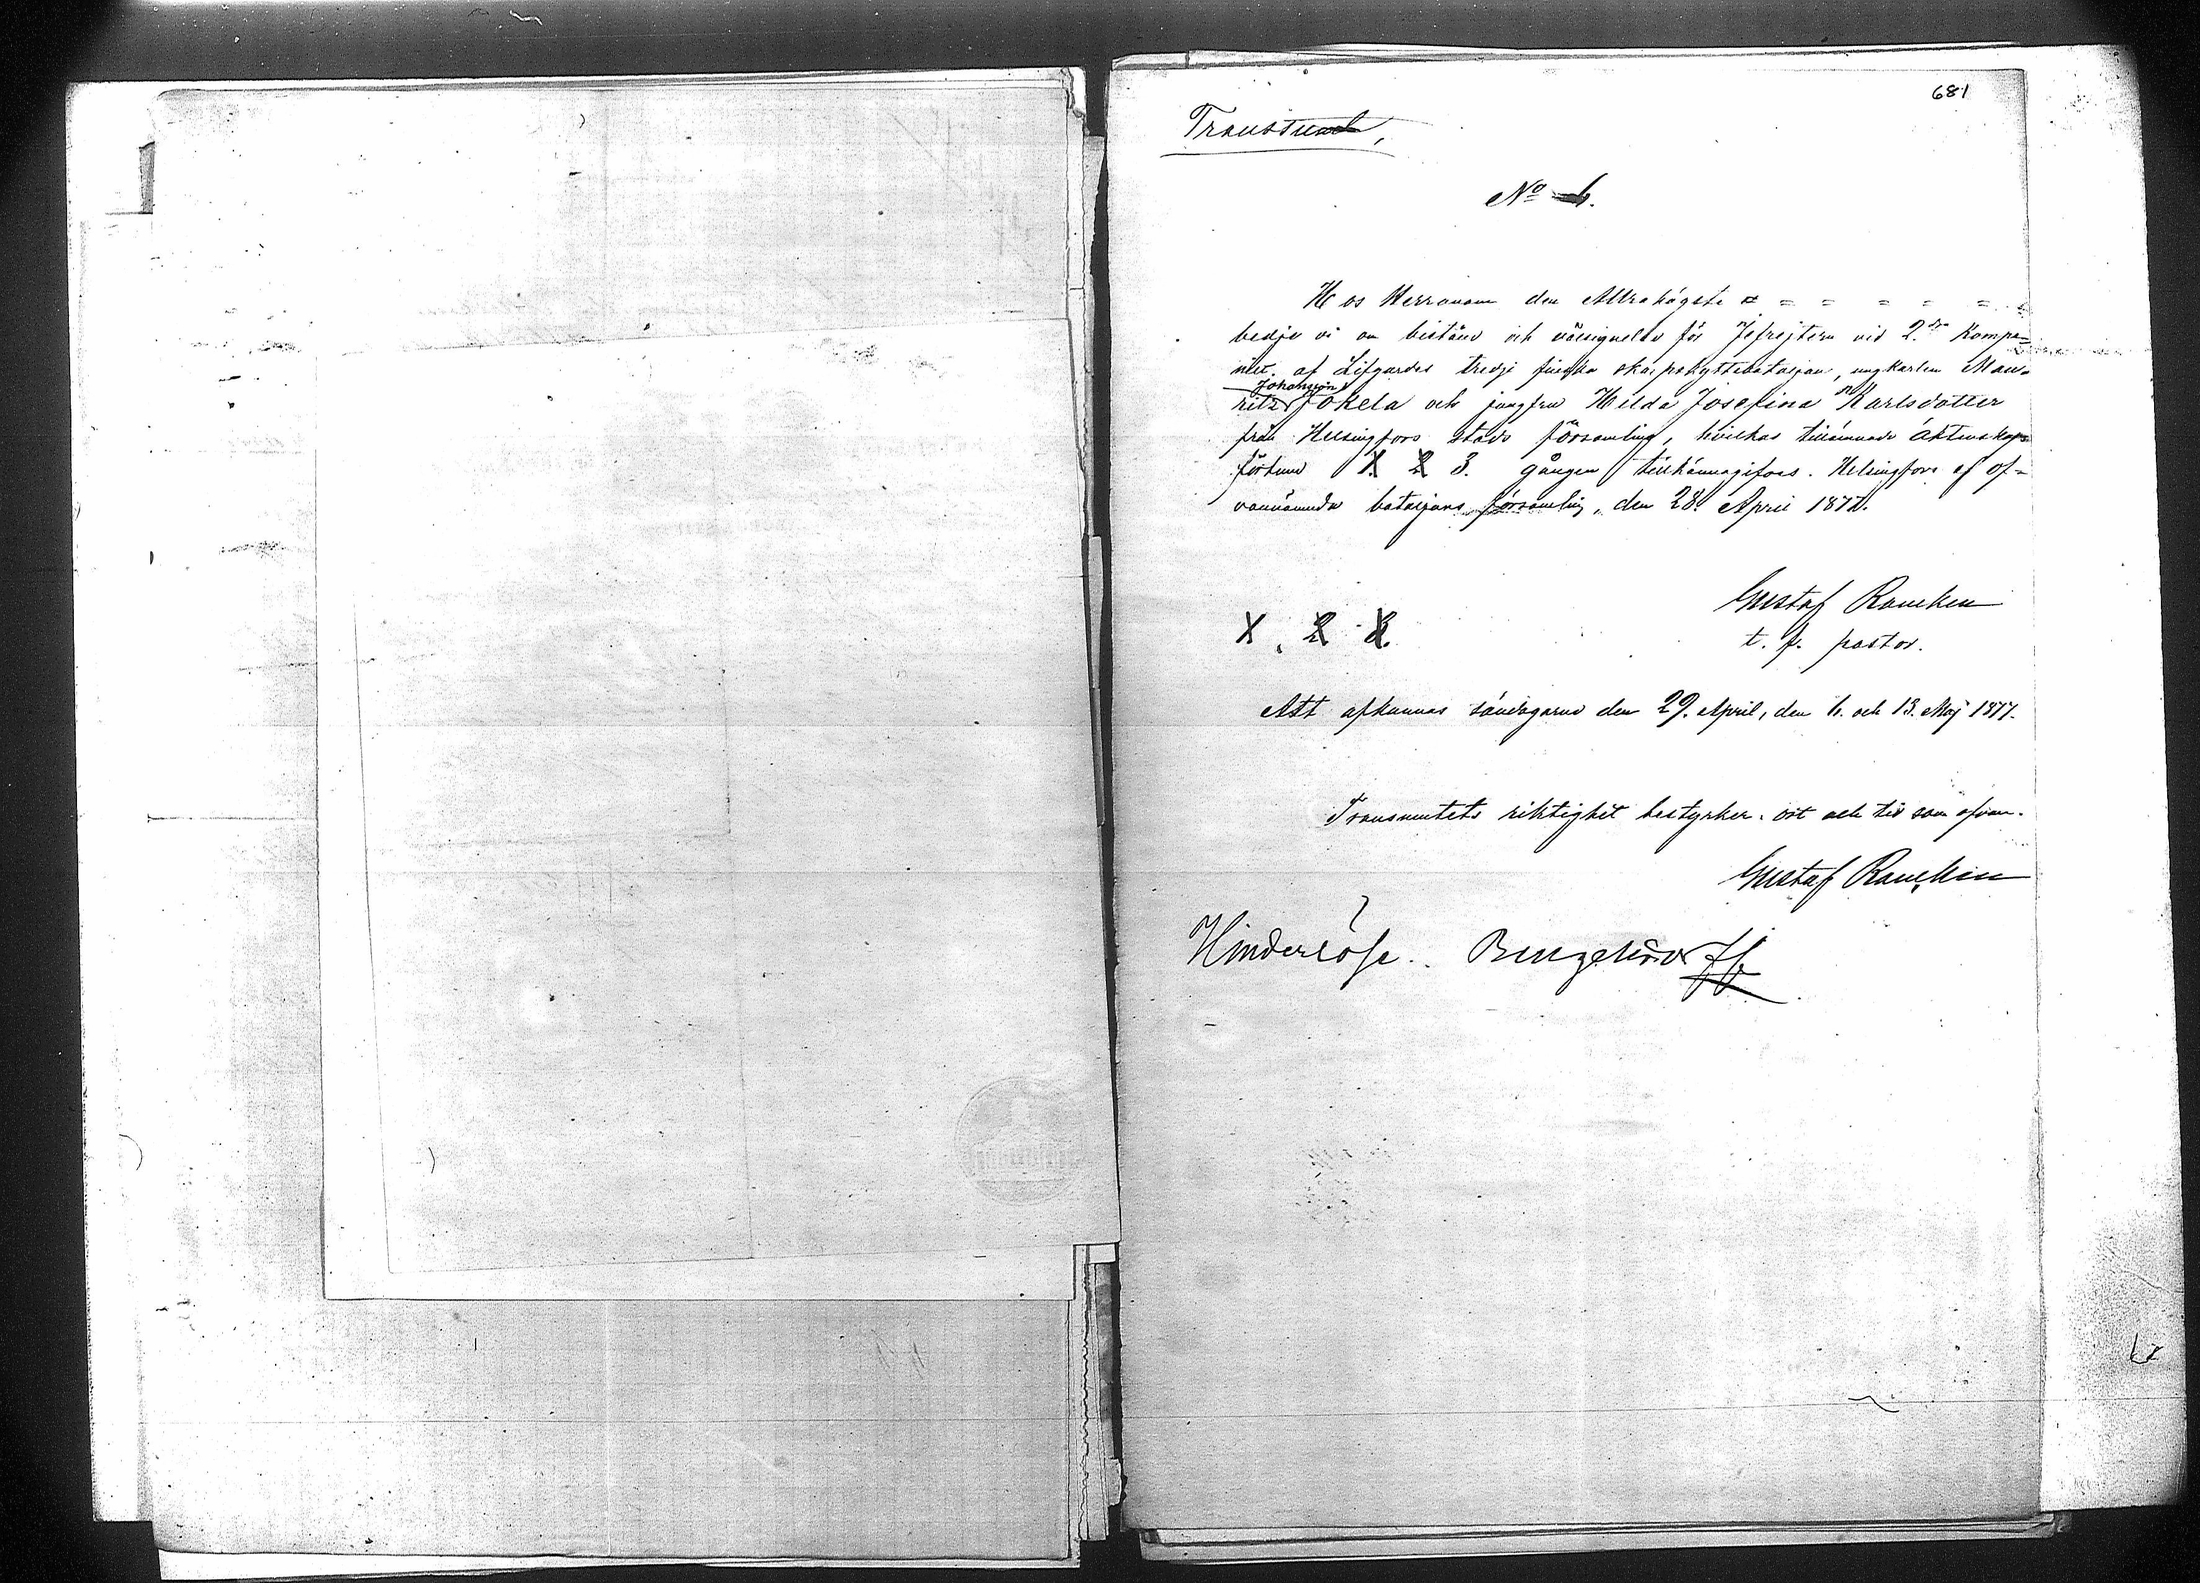 681
Transumt,
No 6.
Hos Herranom den Allrahögste = = = = = =
bedje vi om bistånd och välsignelse för Jefrejtern vid 2.dra Kompa-
niet af Lifgardes tredje finska skarpskyttebataljon, ungkarlen Mau-
Johansson
ritz Jokela och jungfru Hilda Josefina Karlsdotter
från Helsingfors stads församling, hvilkas tillämnade äktenskaps
förbund 1. 2. 3. gången tillkännagifves. Helsingfors af of-
vannämnda bataljons församling, den 28. April 1877.
Gustaf Rancken
t. f. pastor.
1. 2. 3.
Att afkunnas söndagarne den 29. April, den 6. och 13. Maj 1877.
Transumtets riktighet bestyrker, ort och tid som ofvan.
Gustaf Rancken
Hinderlöse..